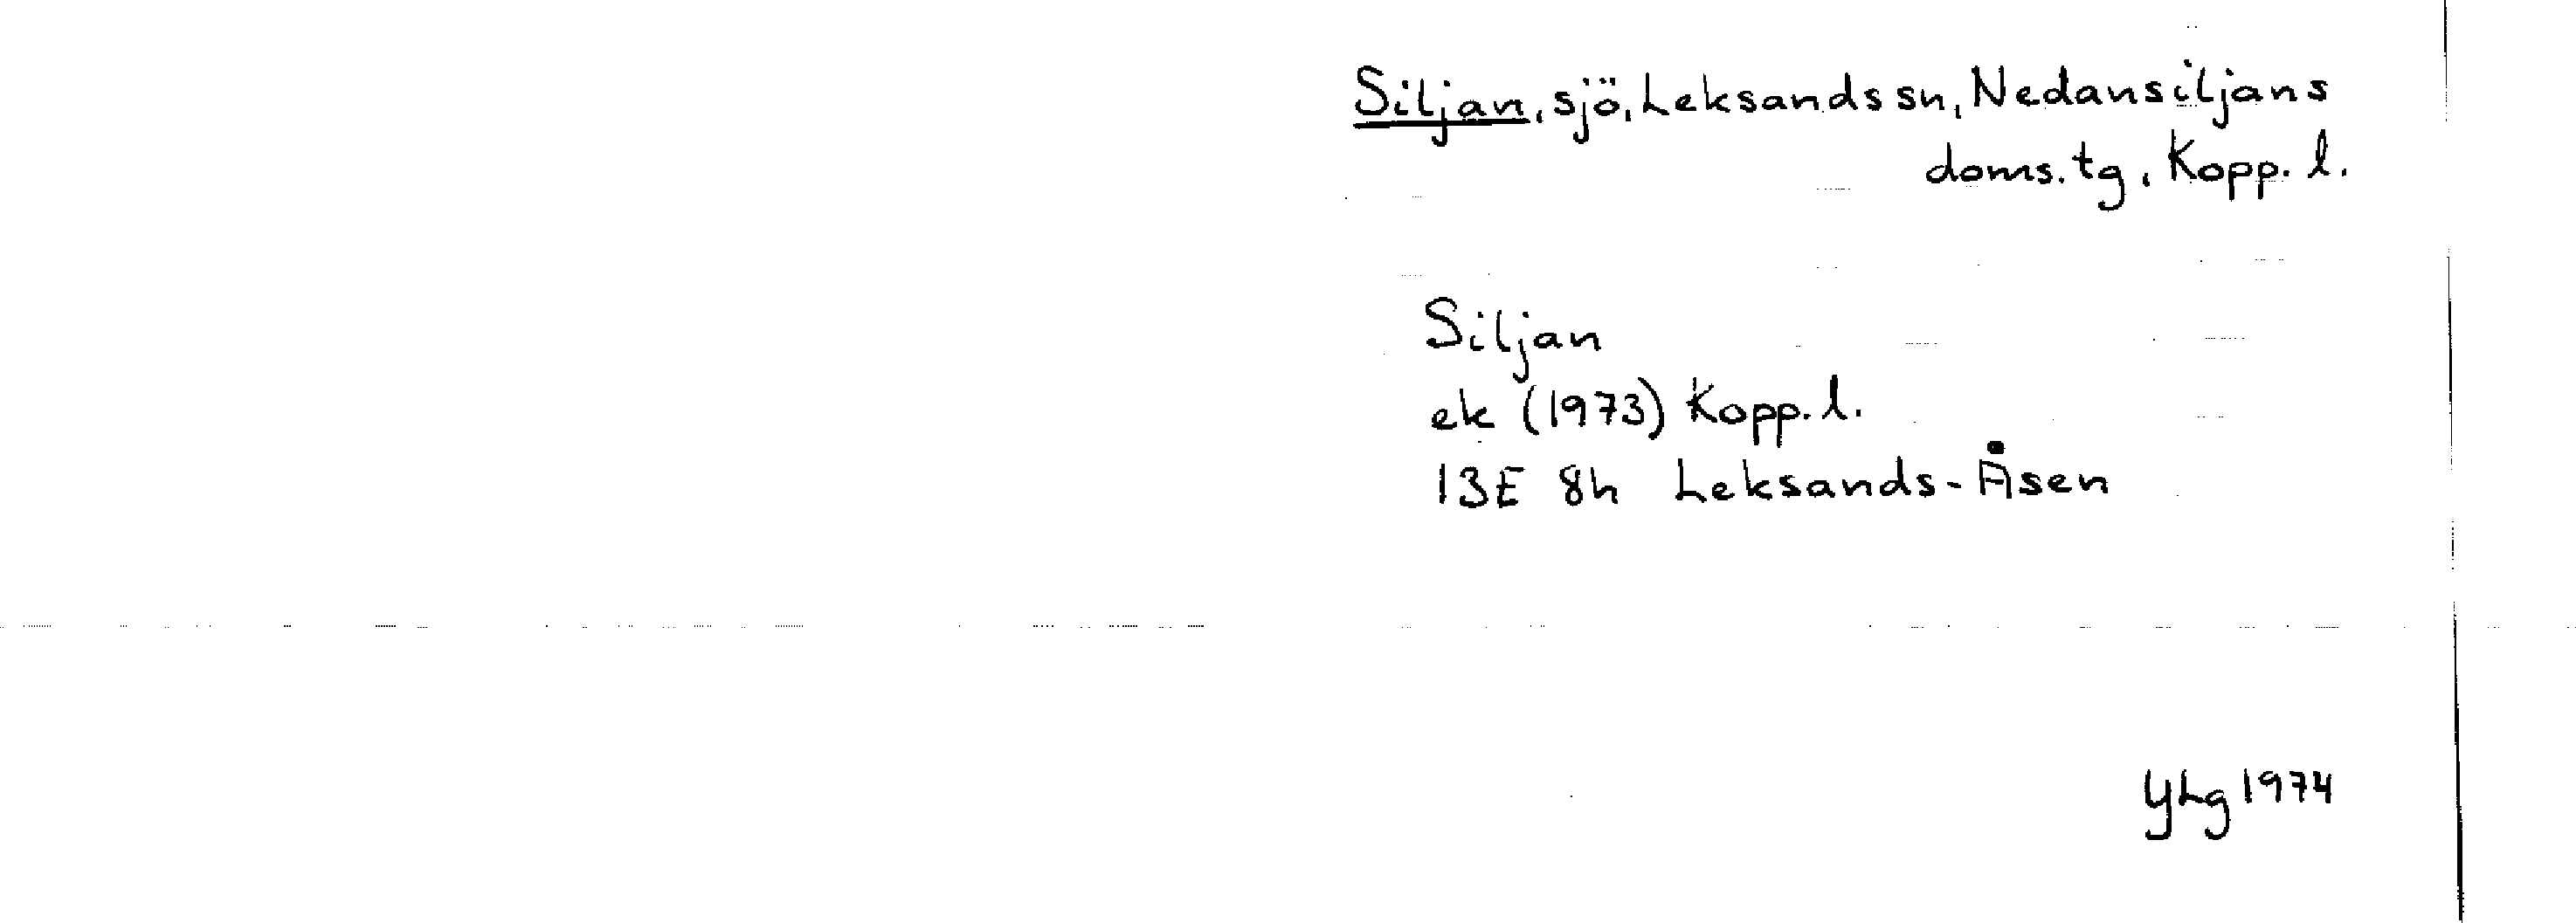 Siljan, sjö, Leksands sn, Nedansiljans
doms. tg, Kopp. l.
Siljan
ek (1973) Kopp. l.
13E 8h Leksands-Åsen
YLg 1974